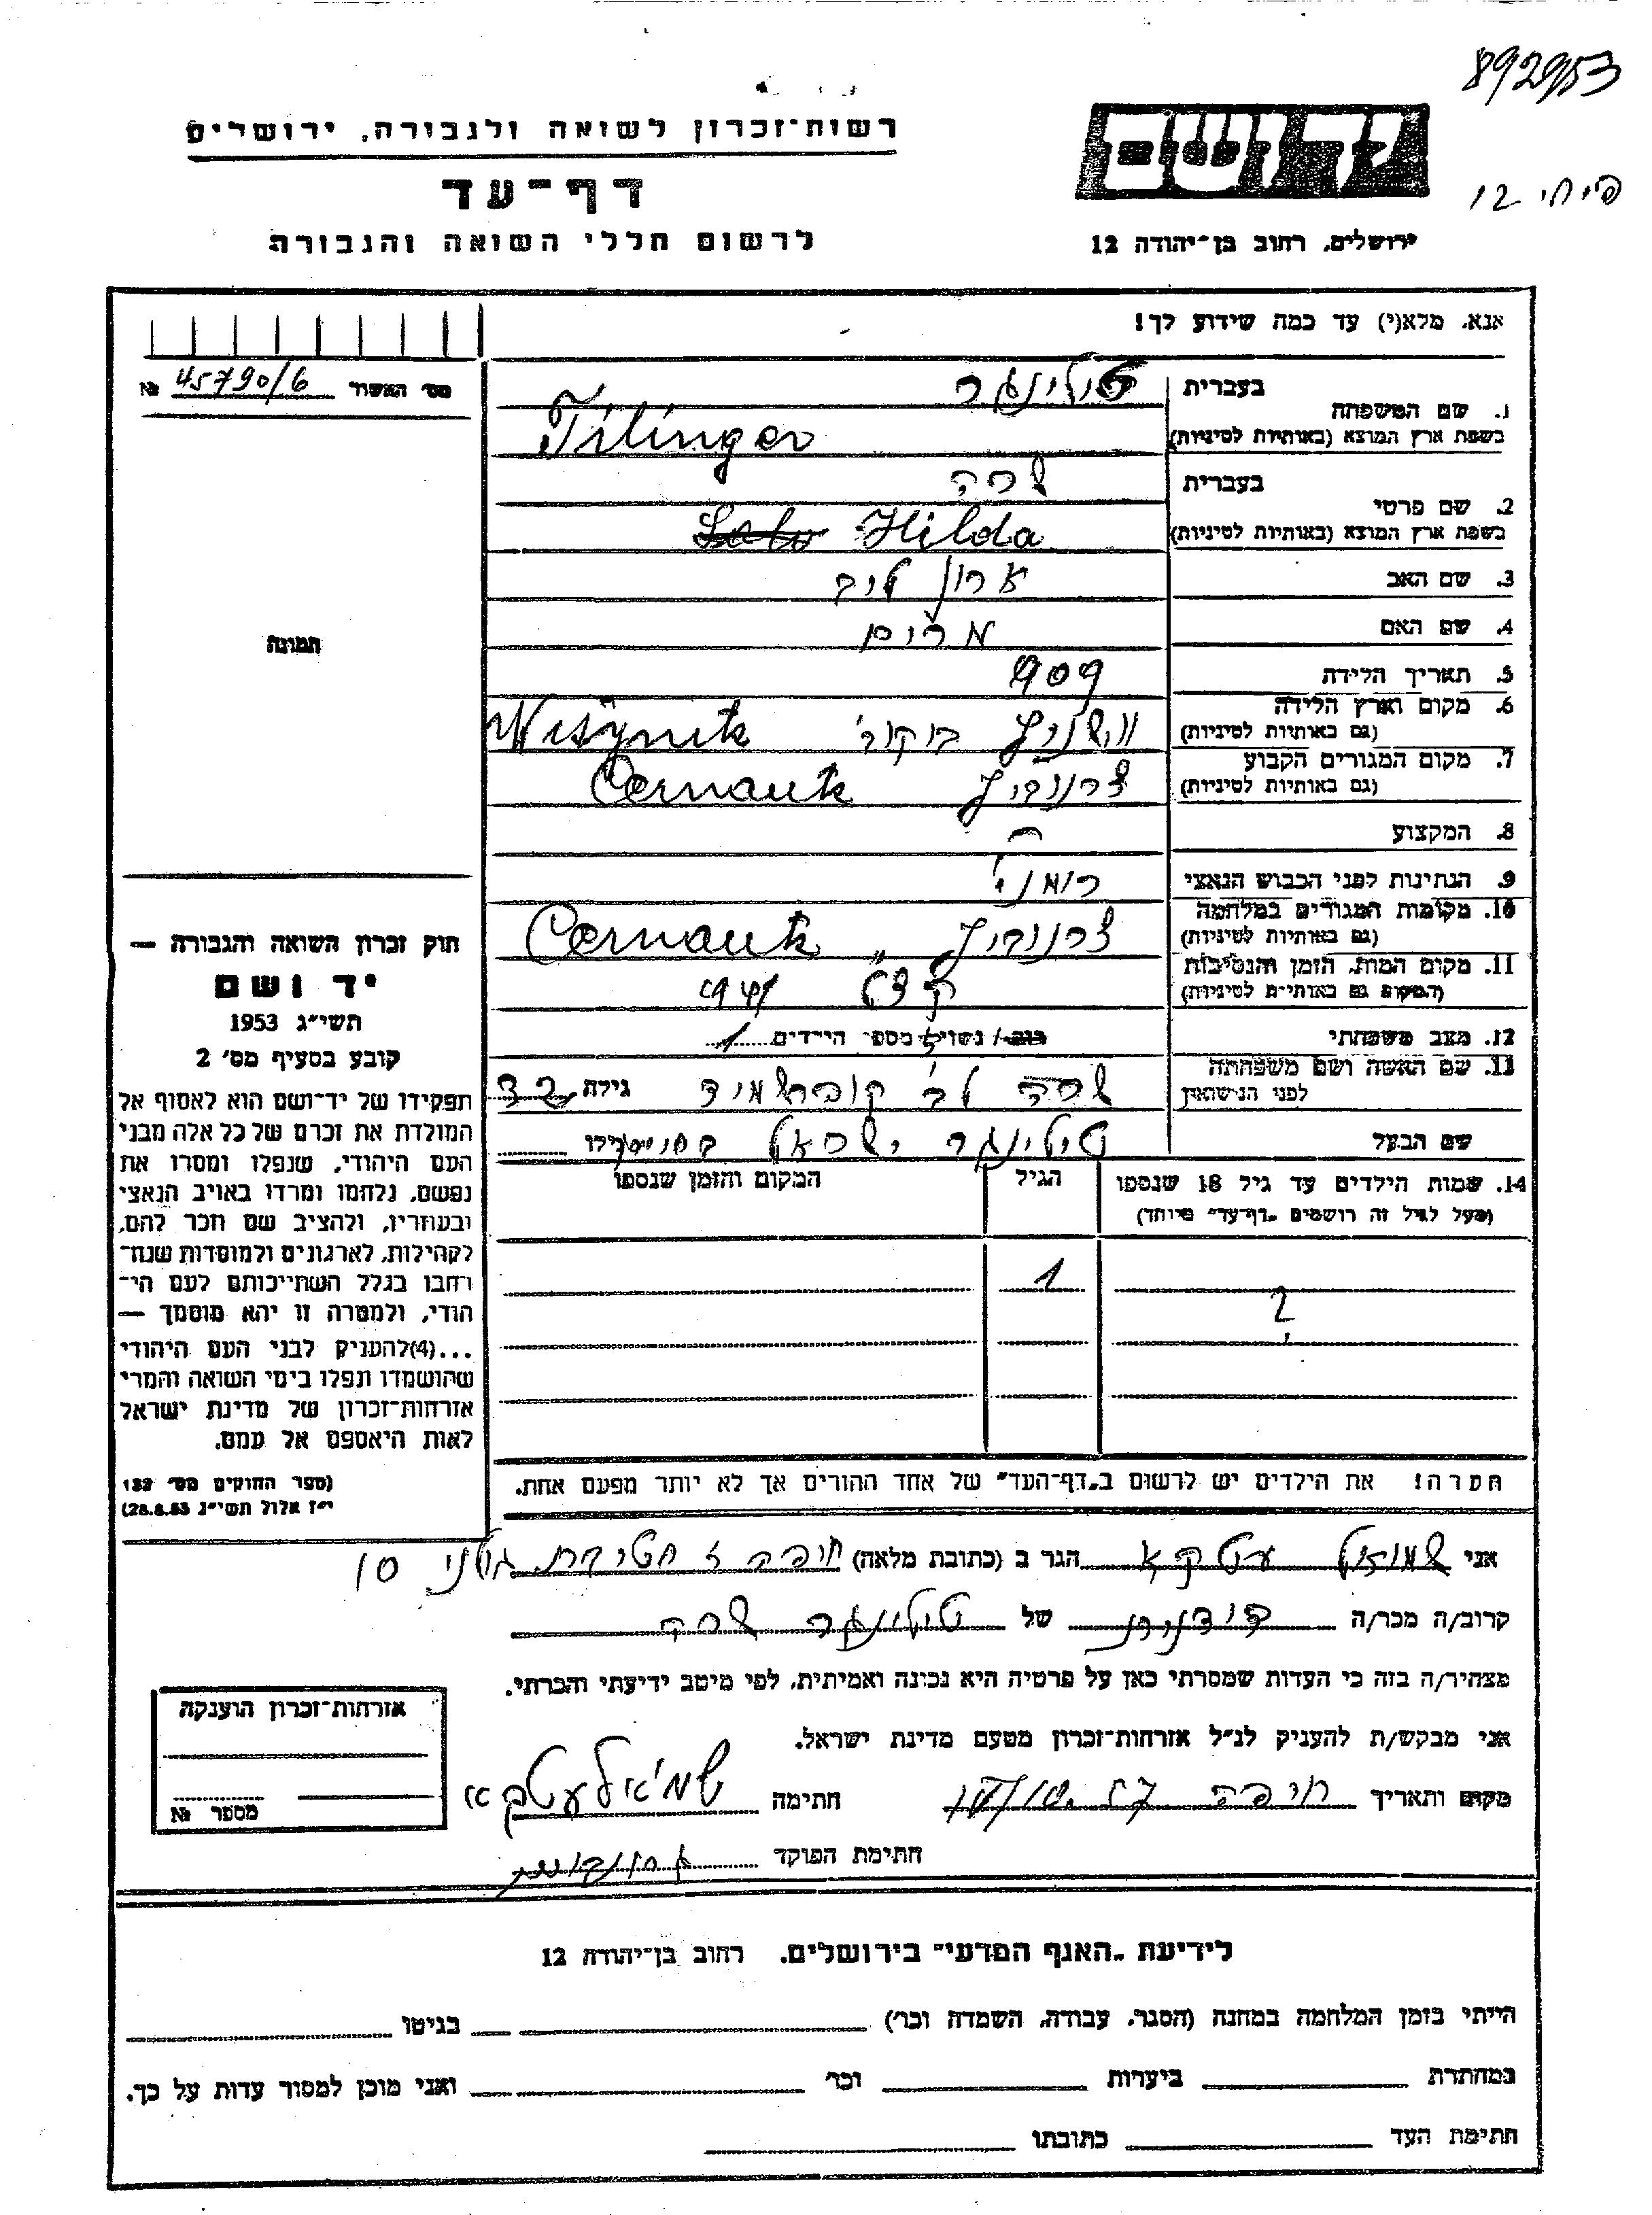 892953
רשות־זכרון לשואה ולגבורה, ירושלים
דף־עד
לרשום חללי השואה והגבורה
יד ושם
ירושלים, רחוב בן־יהודה 12
12
אנא, מלא(י) עד כמה שידוע לך!
מס׳ האשור 45790/6 №
1. שם המשפחה בעברית טילינגר
בשפת ארץ המוצא (באותיות לטיניות) Tilinger
2. שם פרטי בעברית שרה
בשפת ארץ המוצא (באותיות לטיניות) Hilda
3. שם האב ארון ליב
4. שם האם מרים
5. תאריך הלידה 909
6. מקום וארץ הלידה
(גם באותיות לטיניות) וויזשניץ בוקוב׳ Wisznitz
7. מקום המגורים הקבוע
(גם באותיות לטיניות) צרנוביץ Cernautz
8. המקצוע
9. הנתינות לפני הכבוש הנאצי רומני׳
10. מקומות המגורים במלחמה
(גם באותיות לטיניות) צרנוביץ Cernautz
11. מקום המות, הזמן והנסיבות
(המקום גם באותיות לטיניות) 1941
12. מצב משפחתי רוק/ נשוי/ מספר הילדים 1
13. שם האשה ושם משפחתה
לפני הנישואין שרה לב׳ קופרשמיד גילה 32
שם הבעל טילינגר ישראל גילו
14. שמות הילדים עד גיל 18 שנספו הגיל המקום והזמן שנספו
(מעל לגיל זה רושמים ״דף־עד״ מיוחד)
? 1
תמונה
חוק זכרון השואה והגבורה —
יד ושם
תשי״ג 1953
קובע בסעיף מס׳ 2
תפקידו של יד־ושם הוא לאסוף אל
המולדת את זכרם של כל אלה מבני
העם היהודי, שנפלו ומסרו את
נפשם, נלחמו ומרדו באויב הנאצי
ובעוזריו, ולהציב שם וזכר להם,
לקהילות, לארגונים ולמוסדות שנח־
רחבו בגלל השתייכותם לעם הי־
הודי, ולמטרה זו יהא מוסמך —
...(4)להעניק לבני העם היהודי
שהושמדו ונפלו בימי השואה והמרי
אזרחות־זכרון של מדינת ישראל
לאות היאספם אל עמם.
(ספר החוקים מס׳ 132
י״ז אלול תשי״ג 28.8.53)
הערה! את הילדים יש לרשום ב״דף־העד״ של אחד ההורים אך לא יותר מפעם אחת.
אני שמואל עטקא הגר ב (כתובת מלאה) חיפה ז חטיבת גולני 10
קרוב/ה מכר/ה של טילינגר שרה
מצהיר/ה בזה כי העדות שמסרתי כאן על פרטיה היא נכונה ואמיתית, לפי מיטב ידיעתי והכרתי.
אני מבקש/ת להעניק לנ״ל אזרחות־זכרון מטעם מדינת ישראל.
מקום ותאריך חיפה חתימה שמואל עטקא
חתימת הפוקד
אזרחות־זכרון הוענקה
מספר №
לידיעת ״האגף המדעי״ בירושלים, רחוב בן־יהודה 12
הייתי בזמן המלחמה במחנה (הסגר, עבודה, השמדה וכו׳) בגיטו
במחתרת ביערות וכו׳ ואני מוכן למסור עדות על כך.
חתימת העד כתובתו